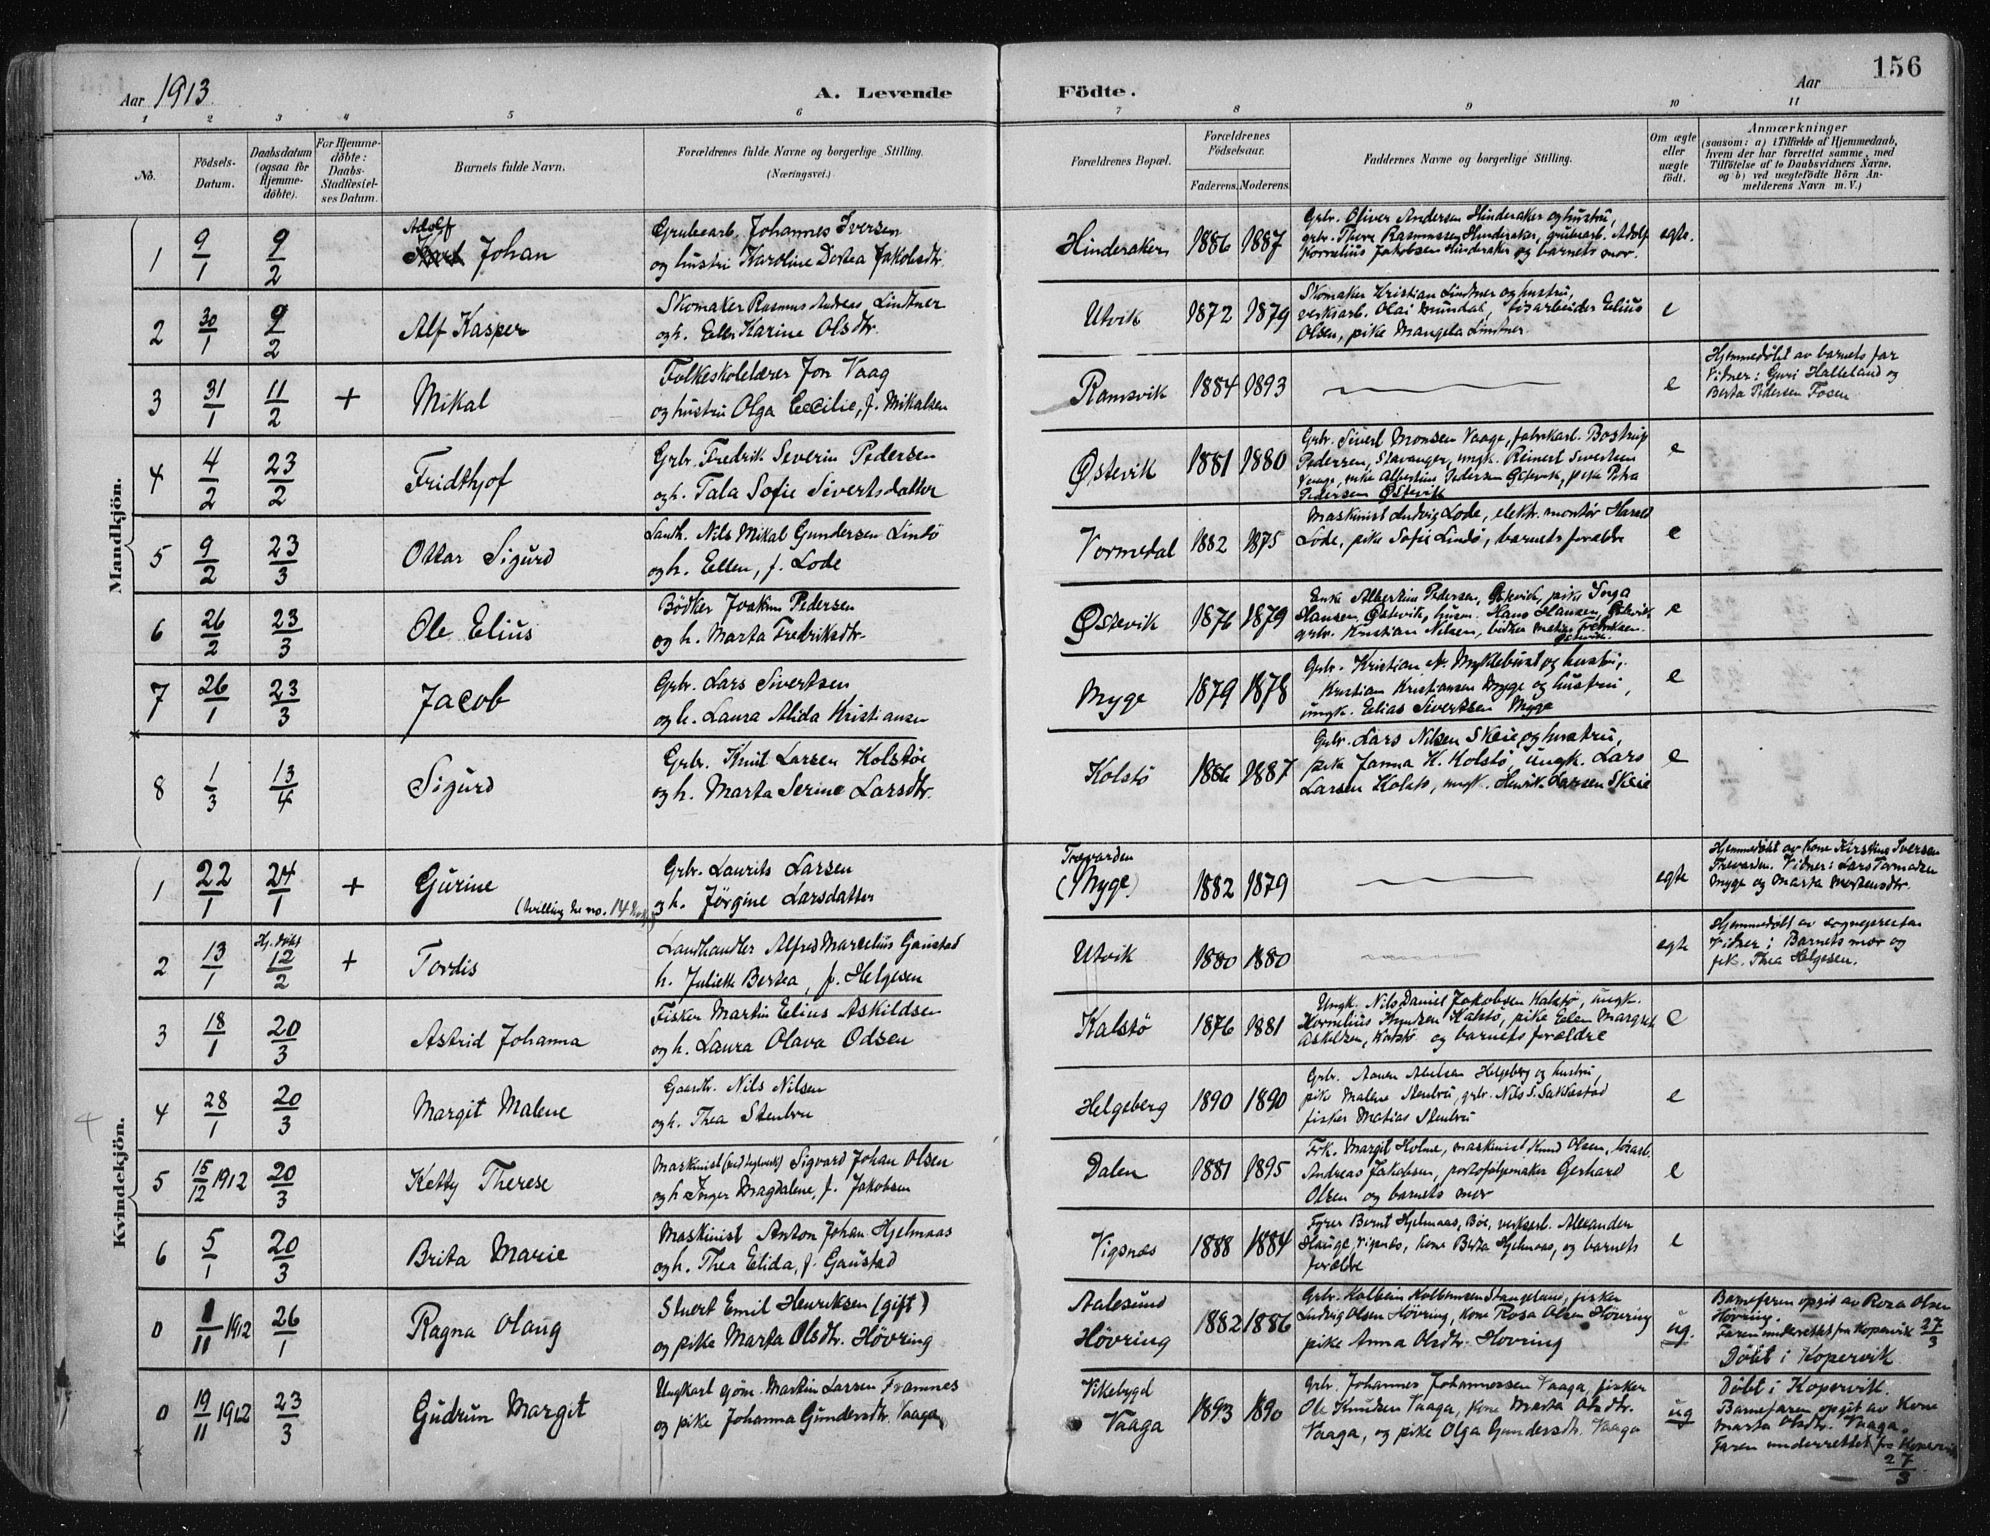 156
Aar 1913.
A. Levende Födte.
Aar
1 2 3 4 5 6 7 8 9 10 11
No.
Födsels-
Datum.
Daabsdatum
(ogsaa for
Hjemme-
døbte).
For Hjemme-
døbte:
Daabs-
Stadfæstel-
ses Datum.
Barnets fulde Navn.
Forældrenes fulde Navne og borgerlige Stilling.
(Næringsvei.)
Forældrenes Bopæl.
Forældrenes
Födselsaar.
Faderens. Moderens.
Faddernes Navne og borgerlige Stilling.
Om ægte
eller
uægte
født.
Anmærkninger
(saasom: a) i Tilfælde af Hjemmedaab,
hvem der har forrettet samme, med
Tilföielse af to Daabsvidners Navne,
og b) ved uægtefödte Börn An-
melderens Navn m. V.)
Mandkjön.
1 9/1 9/2
Adolf
Johan
Grubearb. Johannes Iversen
og hustru Karoline Dortea Jakobsdtr.
Hinderaker 1886 1887
Grbr. Oliver Andersen Hinderaker og hustru,
grbr. Thore Rasmussen Hinderaker, grubearb. Adolf
Kornelius Jakobsen Hinderaker og barnets mor.
egte.
2 30/1 9/2
Alf Kasper
Skomaker Rasmus Andreas Lindtner
og h. Ellen Karine Olsdtr.
Utvik 1872 1879
Skomaker Kristian Lindtner og hustru,
verksarb. Olai Mundal, løsarbeider Elius
Olsen, pike Mangela Lindtner.
e
3 31/1 11/2 +
Mikal
Folkeskolelærer Jon Vaag
og hustru Olga Cecilie, f. Mikalsen
Ramsvik 1884 1893
e
Hjemmedøbt av barnets far
Vidner: Guri Halleland og
Berta Pedersen Fosen
4 4/2 23/2
Fridthjof
Grbr. Fredrik Severin Pedersen
og h. Tala Sofie Sivertsdatter
Østevik 1881 1880
Grbr. Sivert Monsen Vaage, fabrikarb. Bostrup
Pedersen, Stavanger, ungk. Reinert Sivertsen
Vaage, enke Albertine Pedersen Østevik, pike Petra
Pedersen Østevik
e
5 9/2 23/3
Ottar Sigurd
Landh. Nils Mikal Gundersen Lindö
og h. Ellen, f. Lode
Vormedal 1882 1875
Maskinist Ludvig Lode, elektr. montør Harald
Lode, pike Sofie Lindö, barnets forældre
e
6 26/2 23/3
Ole Elius
Bödker Joakim Pedersen
og h. Marta Fredriksdtr.
Østevik 1876 1879
Enke Albertine Pedersen, Østevik, pike Inga
Hansen, Østevik, husm. Hans Hansen, Østevik,
grbr. Kristian Nilsen, bødker Matias Fredriksen
Østevik.
e
7 26/1 23/3
Jacob
Grbr. Lars Sivertsen
og h. Laura Alida Kristiansen
Myge 1879 1878
Grbr. Kristian A. Myklebust og hustru,
Kristian Kristiansen Myge og hustru,
ungk. Elias Sivertsen Myge
e
8 1/3 13/4
Sigurd
Grbr. Knut Larsen Kolstöe
og h. Marta Serine Larsdtr.
Kolstö 1886 1887
Grbr. Lars Nilsen Skeie og hustru,
pike Janna K. Kolstö, ungk. Lars
Larsen Kolstö, ungk. Henrik Larsen Skeie
e
Kvindekjön.
1 22/1 24/1 +
Gurine
(tvilling
Grbr. Laurits Larsen
og h. Jørgine Larsdatter
Trævarden
(Myge) 1882 1879
egte
Hjemmedøbt av kone Kirstine Iversen
Trevarden. Vidner: Lars Tormodsen
Myge og Marta Mortensdtr.
2 13/1 Hj. døbt 12/2 +
Tordis
Landhandler Alfred Marcelius Gaustad
h. Juliette Bertea, f. Helgesen
Utvik 1880 1880
egte
Hjemmedøbt av sognepresten
Vidner: Barnets mor og
frk. Thea Helgesen.
3 18/1 20/3
Astrid Johanna
Fisker Martin Elius Askildsen
og h. Laura Olava Odsen
Kalstö 1876 1881
Ungk. Nils Daniel Jakobsen Kalstö, ungk.
Kornelius Knudsen Kalstö, pike Ellen Margret
Askildsen, Kalstö og barnets forældre
e
4
4 28/1 20/3
Margit Malene
Gaardb. Nils Nilsen
og h. Thea Stenbru
Helgeberg 1890 1890
Grbr. Aanen Nielsen Helgeberg og hustru,
pike Malene Stenbru, grbr. Nils S. Sakkestad
fisker Matias Stenbru
e
5 15/12 1912 20/3
Ketty Therese
Maskinist Sigvard Johan Olsen
og h. Inger Magdalene, f. Jakobsen
Dalen 1881 1895
Frk. Margit Holme, maskinist Knud Olsen, løsarb.
Andreas Jakobsen, portefoljemaker Gerhard
Olsen og barnets mor
e
6 5/1 20/3
Brita Marie
Maskinist Anton Johan Hjelmaas
og h. Thea Elida, f. Gaustad
Vigsnæs 1888 1884
Fyrer Bernt Hjelmaas, Bøe, verksarb. Alexander
Hauge, Vigsnes, kone Berta Hjelmaas, og barnets
forældre
e
0 1/11 1912 26/1
Ragna Olaug
Stuert Emil Henriksen (gift)
og pike Marta Olsdtr. Hövring
Aalesund
Hövring 1882 1886
Grbr. Kolbein Kolbeinsen Stangeland, fisker
Ludvig Olsen Hövring, kone Rosa Olsen Hövring
pike Anna Olsdtr. Hovring
ug.
Barnefaren opgit av Rosa Olsen
Hövring.
Faren underrettet fra Kopervik 27/3
Döbt i Kopervik
0 19/11 1912 23/3
Gudrun Margit
Ungkarl sjöm. Martin Larsen Framnes
og pike Johanna Gundersdtr. Vaaga
Vikebygd
Vaaga 1893 1890
Grbr. Johannes Johannessen Vaaga, fisker
Ole Knudsen Vaaga, kone Marta Olsdtr.
Vaaga, og pike Olga Gundersdtr. Vaaga
ug
Döbt i Kopervik.
Barnefaren opgit av kone
Marta Olsdtr. Vaaga.
Faren underrettet fra Kopervik
27/3